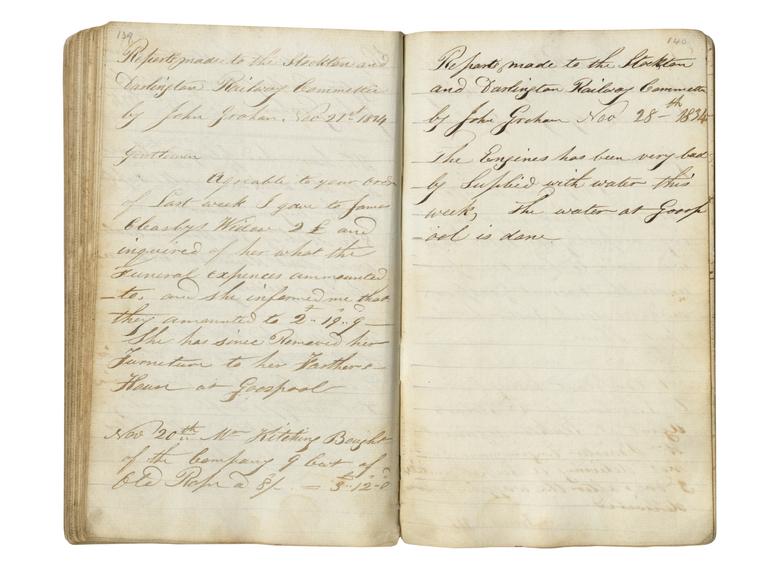 139
Reports made to the Stockton and
Darlington Railway Committee
by John Graham. Nov 21st 1834
Gentlemen
Agreable to your order
of Last week I gave to James
Cleasbys Widow 2 £ and
inquired of her what the
Funeral expences ammounted
to. and She informed me that
they amounted to 2 - 19 - 9 -
She has since Removed her
Furniture to her Farther's
House at Goospool
Nov 20th Mr Kitching Bought
of the Company 9 Cwt of
Old Rope a 8/- = 3 - 12 - 0
140
Reports made to the Stockton
and Darlington Railway Committee
by John Graham Nov 28th 1834
The Engines has been very bad
by Suplied with water this
week, The water at Goosp
ool is done